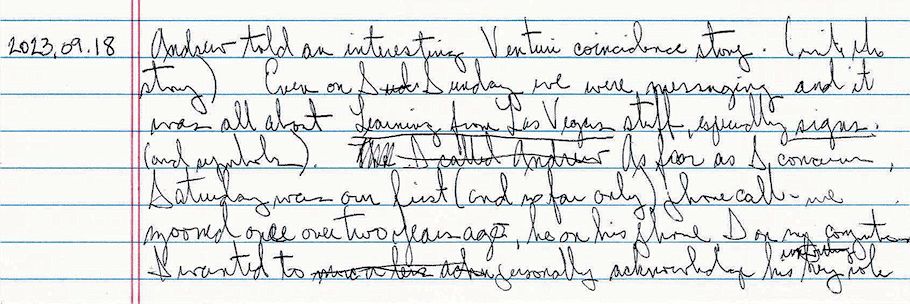 2023.09.18 Andrew told an interesting Venturi coincidence story. (write the
story) Even on Sunday we were messaging and it
was all about Learning from Las Vegas stuff, especially signs.
(and symbols). I called Andrew As far as I, concern,
Saturday was our first (and so far only) phone call - we
zoomed once over two years ago, he on his phone I on my computer
I wanted to personally acknowledge his key role